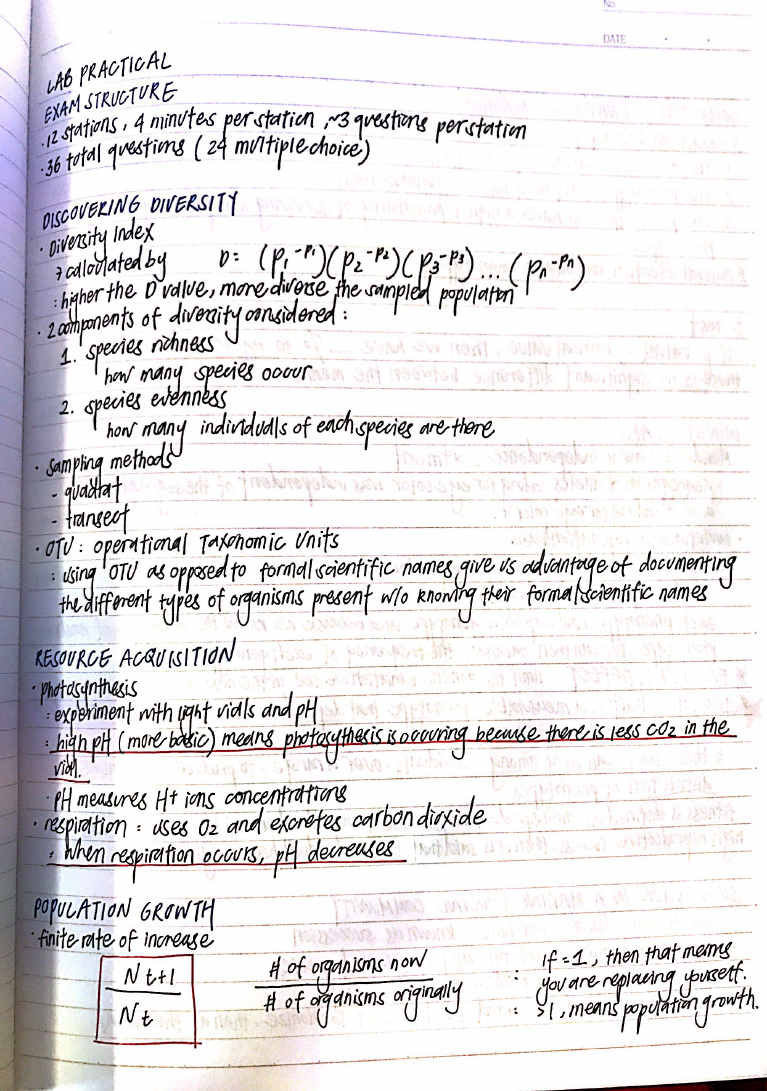 NO.
DATE
LAB PRACTICAL
EXAM STRUCTURE
· 12 stations, 4 minutes per station, ~3 questions per station
· 36 total questions (24 multiple choice)
DISCOVERING DIVERSITY
· Diversity Index
→ calculated by D = (p₁^-p₁)(p₂^-p₂)(p₃^-p₃)...(pn^-pn)
: higher the D value, more diverse the sampled population
· 2 components of diversity considered :
1. species richness
how many species occur
2. species evenness
how many individuals of each species are there
· sampling methods
- quadrat
- transect
· OTU : operational Taxonomic Units
: using OTU as opposed to formal scientific names give us advantage of documenting
the different types of organisms present w/o knowing their formal scientific names
RESOURCE ACQUISITION
· photosynthesis
: experiment with light vialls and pH
: high pH (more basic) means photosythesis is occuring because there is less CO2 in the
vial.
· pH measures H+ ions concentrations
· respiration : uses O2 and excretes carbon dioxide
: When respiration occurs, pH decreases
POPULATION GROWTH
· finite rate of increase
N t+1 / N t
# of organisms now / # of organisms originally
: if = 1, then that means
you are replacing yourself.
: >1, means population growth.